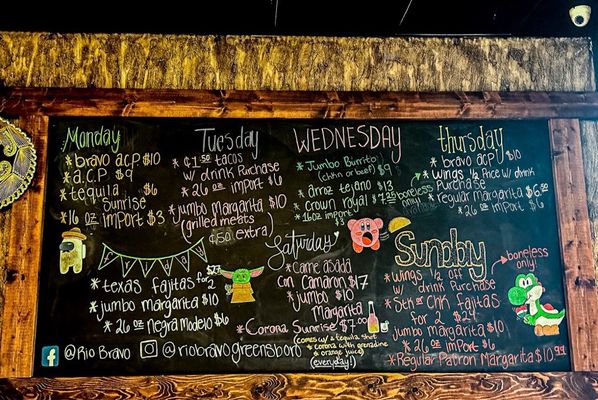 Monday
* bravo acp $10
* a.c.p $9
* tequila $6
Sunrise
* 16 oz import $3
Tuesday
* $1.50 tacos
w/ drink Purchase
* 26 oz import $6
* jumbo Margarita $10
(grilled meats
$.50 extra)
WEDNESDAY
* Jumbo Burrito
(chkn or beef) $9
* arroz tejano $13
* Crown Royal $7.25
* 16oz import
thursday
* bravo acp $10
* wings ½ Price w/ drink
Purchase
boneless
only
* regular margarita $6.50
* 26 oz import $6
FRIDAY
* texas fajitas for 2
* jumbo margarita $10
* 26 oz Negra Modelo $6
Saturday
* Carne asada
Con Camaron $17
* jumbo $10
Margarita
* Corona Sunrise $7.00
(comes w/ a tequila shot
* corona with grenadine
* orange juice)
(everyday!)
Sunday
* wings ½ off w/
drink Purchase
boneless
only!
* Stk or Chk fajitas
for 2 $24
jumbo margarita $10
* 26 oz import $6
* Regular Patron Margarita $10
@Rio Bravo
@riobravogreensboro